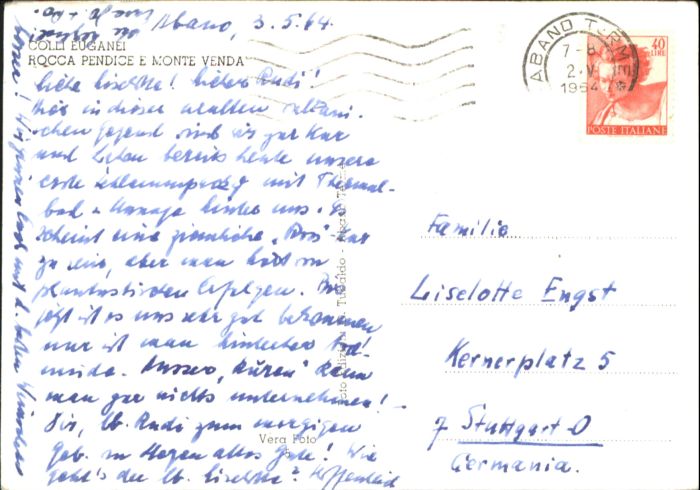 Abano, 3.5.64.
COLLI EUGANEI
ROCCA PENDICE E MONTE VENDA
Liebe Liselotte! Lieber Rudi!
Hier in dieser uralten vulkani-
schen Gegend sind wir zur Kur
und haben bereits heute unsere
erste Schlammpackg mit Thermal-
bad + Massage hinter uns. Es
scheint eine ziemliche „Ross"-kur
zu sein, aber man hört von
phantastischen Erfolgen. Bis
jetzt ist es uns sehr gut bekommen
nur ist man hinterher
müde. Ausser „Kuren" kann
man gar nichts unternehmen!
Dir, lb. Rudi zum morgigen
Geb. alles Gute! Wie
geht's der lb. Liselotte? Hoffentlich
besser!
ABANO TERME
7-8
2.V
1964
40
LIRE
POSTE ITALIANE
Familie
Liselotte Engst
Kernerplatz 5
7 Stuttgart-O
Germania.
Vera Foto